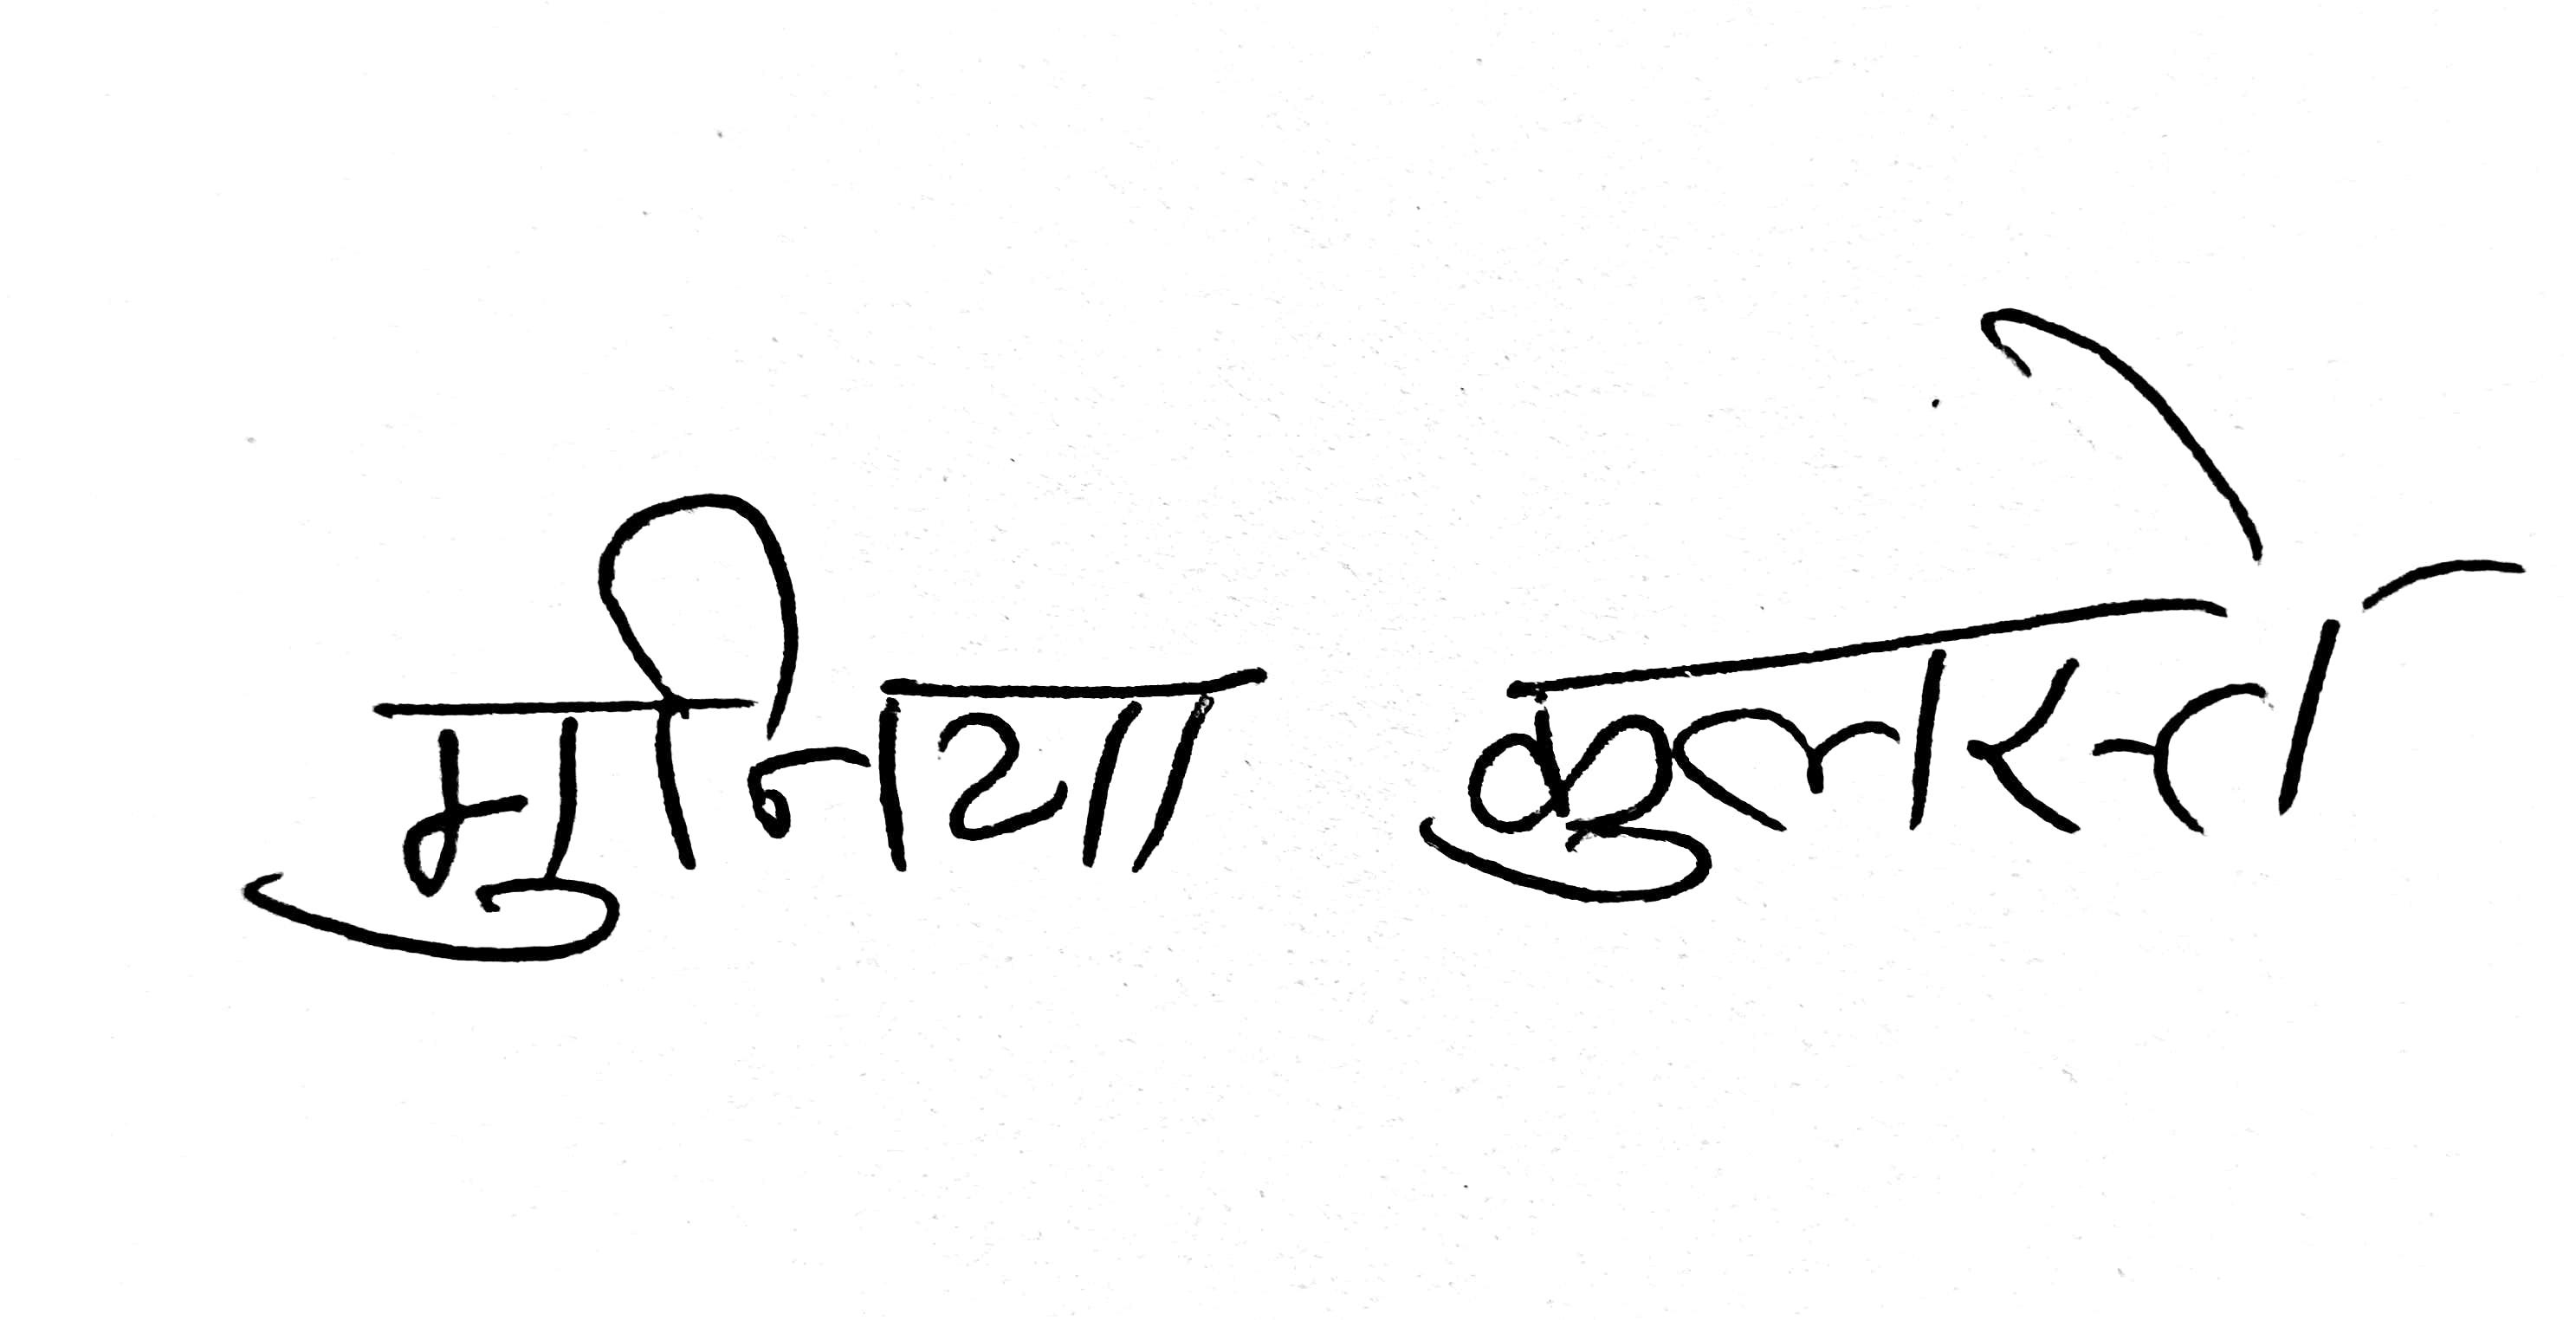 मुनिया कुलस्ते